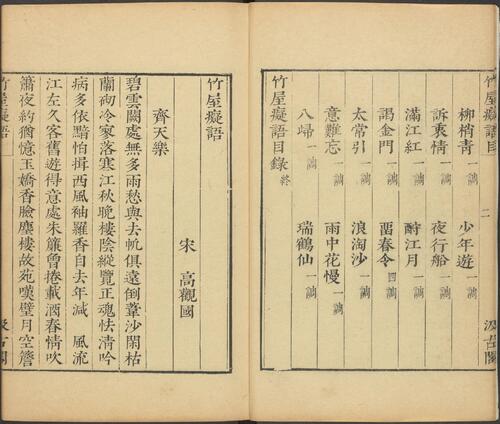 竹屋癡語目 二 汲古閣
柳梢青一調 少年遊一調
訴衷情一調 夜行船一調
滿江紅一調 酹江月一調
謁金門一調 留春令四調
太常引一調 浪淘沙一調
意難忘一調 雨中花慢一調
八歸一調 瑞鶴仙一調
竹屋癡語目錄終
竹屋癡語
宋 高觀國
齊天樂
碧雲闕處無多雨愁與去帆俱遠倒葦沙閑枯
蘭砌冷寥落寒江秋晚樓陰縱覽正魂怯清吟
病多依黯怕挹西風袖羅香自去年減 風流
江左久客舊遊得意處朱簾曾捲載酒春情吹
簫夜約猶憶玉嬌香臉塵樓故苑嘆璧月空簷
竹屋癡語 一 汲古閣